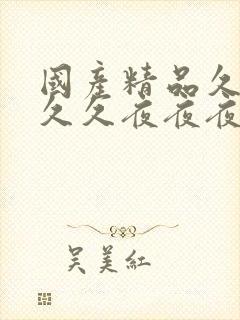 國產精品久
久久夜夜夜
吴美紅